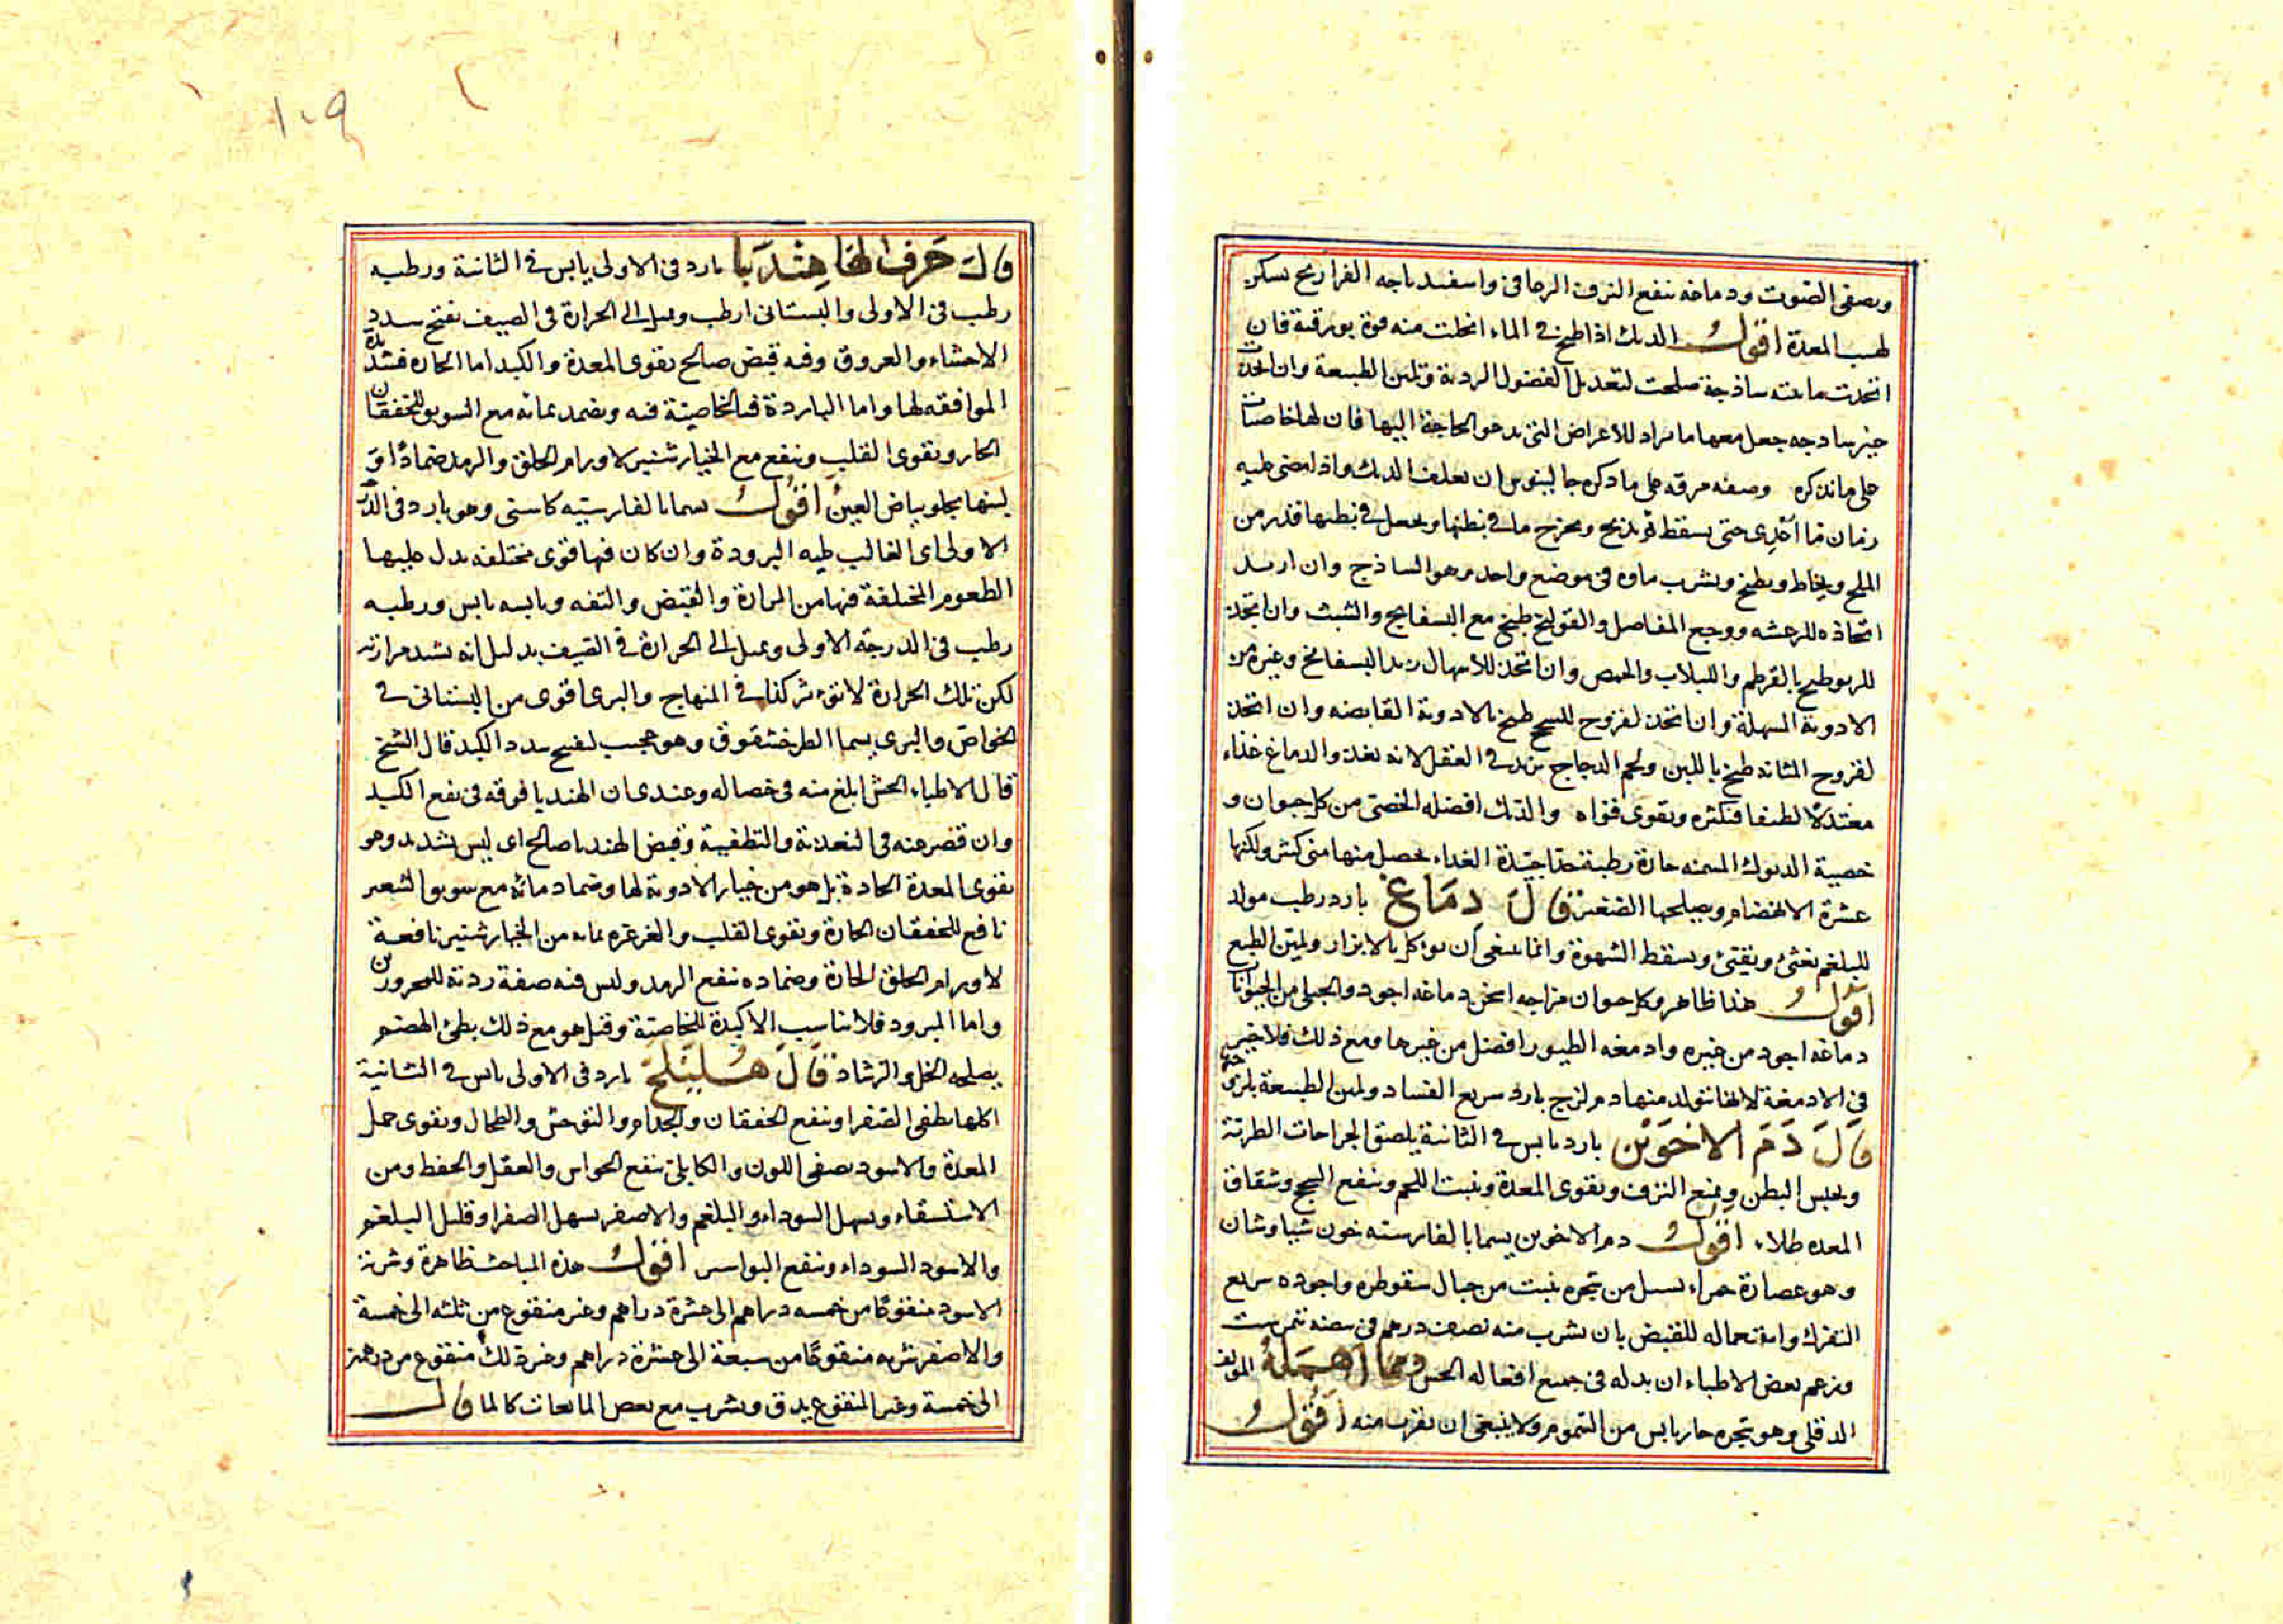 ويصفى الصوت ودماغه ينفع النزف الرعافى واسفيدباجه الفراريج يسكن
لهيب المعدة اقول الديك اذا طبخ فى الماء انحلت منه قوة بورقية فان
اتخذت مائيته ساذجة صلحت لتعديل الفضول الردية وتلين الطبيعة وان اتخذت
غير ساذجه جعل معها ما يراد للاعراض التى يدعو الحاجة اليها فان لها خاصيات
على ما نذكره وصفه مرقه على ما ذكره جالينوس ان يعلف الديك واذا مضى عليه
زمان ما حتى يسقط ثم يذبح ويخرج ما فى بطنها ويجعل فى بطنها قدر من
الملح ويخاط ويطبخ ويشرب ماؤه فى موضع واحد مر هو الساذج وان اريد
اتخاذه للرعشه ووجع المفاصل والقولنج طبخ مع البسفايج والشبث وان اتخذ
للربو طبخ بالقرطم واللبلاب والحمص وان اتخذ للاسهال زيد البسفايج وغيره من
الادوية المسهلة وان اتخذ لقروح للسحج طبخ بالادوية القابضه وان اتخذ
لقروح المثانه طبخ باللبن ولحم الدجاج يزيد فى العقل لانه يغذ والدماغ غذاء
معتدلا لطيفا فيكثره ويقوى قواه والديك افضله الخصى من كل حيوان و
خصية الديوك المسمنه حارة رطبة جدا جيدة الغداء يحصل منها منى كثير ولكنها
عسرة الانهضام ويصلحها الصعتر قال دماغ بارد رطب مولد
للبلغم يغثى ويقيئ ويسقط الشهوة وانما ينبغى ان يوكل بالابزار ويلين الطبع
اقول هذا ظاهر وكل حيوان مزاجه اسخن دماغه اجود والجبلى من الحيوانات
دماغه اجود من غيره وادمغه الطيور افضل من غيرها ومع ذلك فلا خير
فى الادمغة لانها يتولد منها دم لزج بارد سريع الفساد ويلين الطبيعة بلزوجته
قال دم الاخوين بارد يابس فى الثانية يلصق الجراحات الطرية
ويحبس البطن ويمنع النزف ويقوى المعدة وينبت اللحم وينفع السحج وشقاق
المعده طلاء اقول دم الاخوين يسما بالفارسية خون سياوشان
وهو عصارة حمراء يسيل من شجره ينبت من جبال سقوطره واجوده سريع
التفرك واستعماله للقبض بان يشرب منه نصف درهم فى بيضه نمرشت
وزعم بعض الاطباء ان بدله فى جميع افعاله الخس ومما اهمله المؤلف
الدفلى وهو شجره حار يابس من السموم ولا ينبغى ان يقرب منه اقول
١٠٩
قال حرف الها هندبا بارد فى الاولى يابس فى الثانية ورطبه
رطب فى الاولى والبستانى ارطب ويميل الى الحرارة فى الصيف يفتح سدد
الاحشاء والعروق وفيه قبض صالح يقوى المعدة والكبد اما الحاره فشديدة
الموافقه لها واما الباردة فبالخاصية فيه ويضمد بمائه مع السويق للخفقان
الحار ويقوى القلب وينفع مع الخيارشنبر لاورام الحلق والرمد ضمادا و
لبنها يجلو بياض العين اقول يسما بالفارسيه كاسنى وهو بارد فى الدرجة
الاولى اى الغالب عليه البرودة وان كان فيها قوى مختلفه يدل عليها
الطعوم المختلفة فيها من المرارة والقبض والتفه ويابسه يابس ورطبه
رطب فى الدرجة الاولى ويميل الى الحرارة فى الصيف بدليل انه يشد مرارته
لكن تلك الحرارة لا تؤثر كذا فى المنهاج والبرى اقوى من البستانى فى
الخواص والبرى يسما الطرخشقوق وهو عجيب لفتح سدد الكبد قال الشيخ
قال الاطباء الخس ابلغ منه فى خصاله وعندى ان الهندبا فوقه فى نفع الكبد
وان قصر عنه فى التغذية والتطفية وقبض الهندبا صالح اى ليس بشديد وهو
يقوى المعدة الحادة بل هو من خيار الادوية لها وضماد مائه مع سويق الشعير
نافع للخفقان الحارة ويقوى القلب والغرغره بمائه من الخيارشنبر نافعة
لاورام الحلق الحارة وضماده ينفع الرمد وليس فيه صفة ردية للمحرورين
واما المبرود فلا يناسب الا كبدة للخاصية وقيل هو مع ذلك بطئ الهضم
يصلحه الخل والرشاد قال هليلج بارد فى الاولى يابس فى الثانية
اكلها يطفى الصفرا وينفع الخفقان والجذام والتوحش والطحال ويقوى خمل
المعدة والاسود يصفى اللون والكابلى ينفع الحواس والعقل والحفظ ومن
الاستسقاء ويسهل السوداء والبلغم والاصفر يسهل الصفرا وقليل البلغم
والاسود السوداء وينفع البواسير اقول هذه المباحث ظاهرة وشربة
الاسود منقوعا من خمسه دراهم الى عشرة دراهم وغير منقوع من ثلثه الى خمسة
والاصفر شربه منقوعا من سبعة الى عشرة دراهم وغير ذلك منقوع من درهمين
الى خمسة وغير المنقوع يدق ويشرب مع بعض المايعات كالما قال